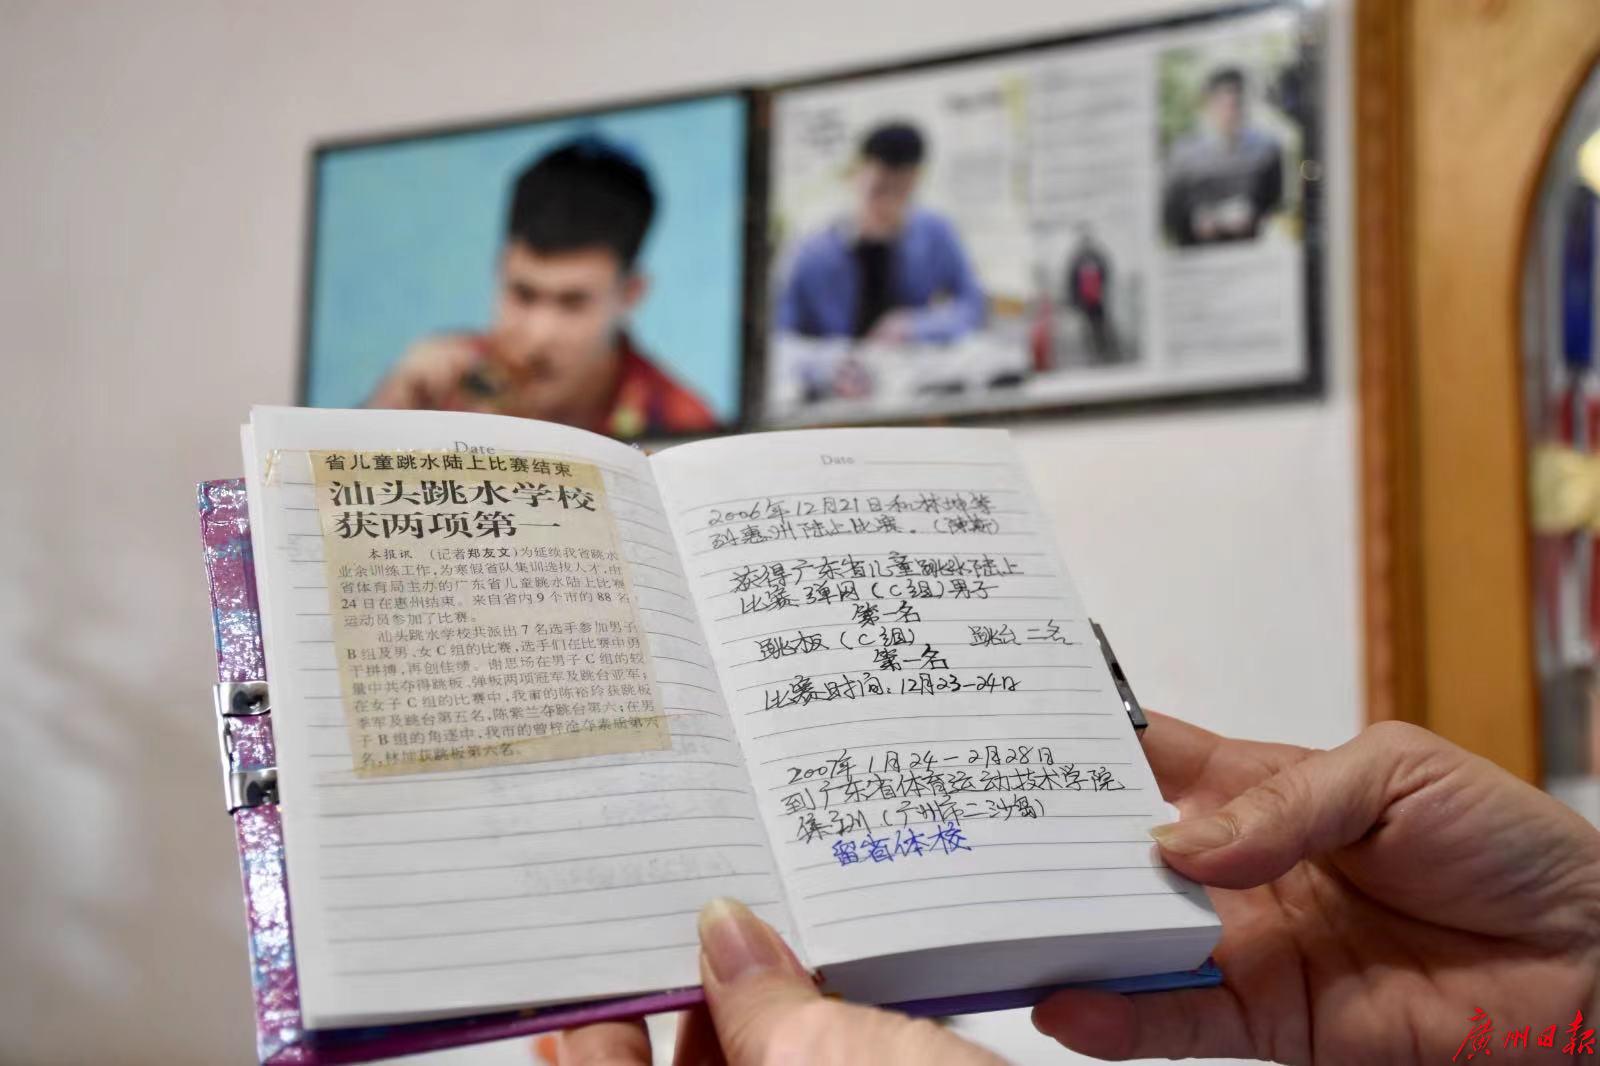 Date
省儿童跳水陆上比赛结束
汕头跳水学校
获两项第一
本报讯 （记者郑友文）为延续我省跳水
业余训练工作，为寒假省队集训选拔人才，由
省体育局主办的广东省儿童跳水陆上比赛
24日在惠州结束。来自省内9个市的88名
运动员参加了比赛。
汕头跳水学校共派出7名选手参加男子
B组及男、女C组的比赛，选手们在比赛中勇
于拼搏，再创佳绩。谢思场在男子C组的较
量中共夺得跳板、弹板两项冠军及跳台亚军；
在女子C组的比赛中，我市的陈裕玲获跳板
季军及跳台第五名，陈紫兰夺跳台第六；在男
子B组的角逐中，我市的曾梓淦夺素质第六
名，林坤获跳板第六名。
Date
2006年12月21日和林坤等
到惠州陆上比赛。
获得广东省儿童跳水陆上
比赛弹网（C组）男子
第一名
跳板（C组） 跳台二名
第一名
比赛时间：12月23-24日
2007年1月24-2月28日
到广东省体育运动技术学院
集训（广州市二沙岛）
留省体校
廣州日報